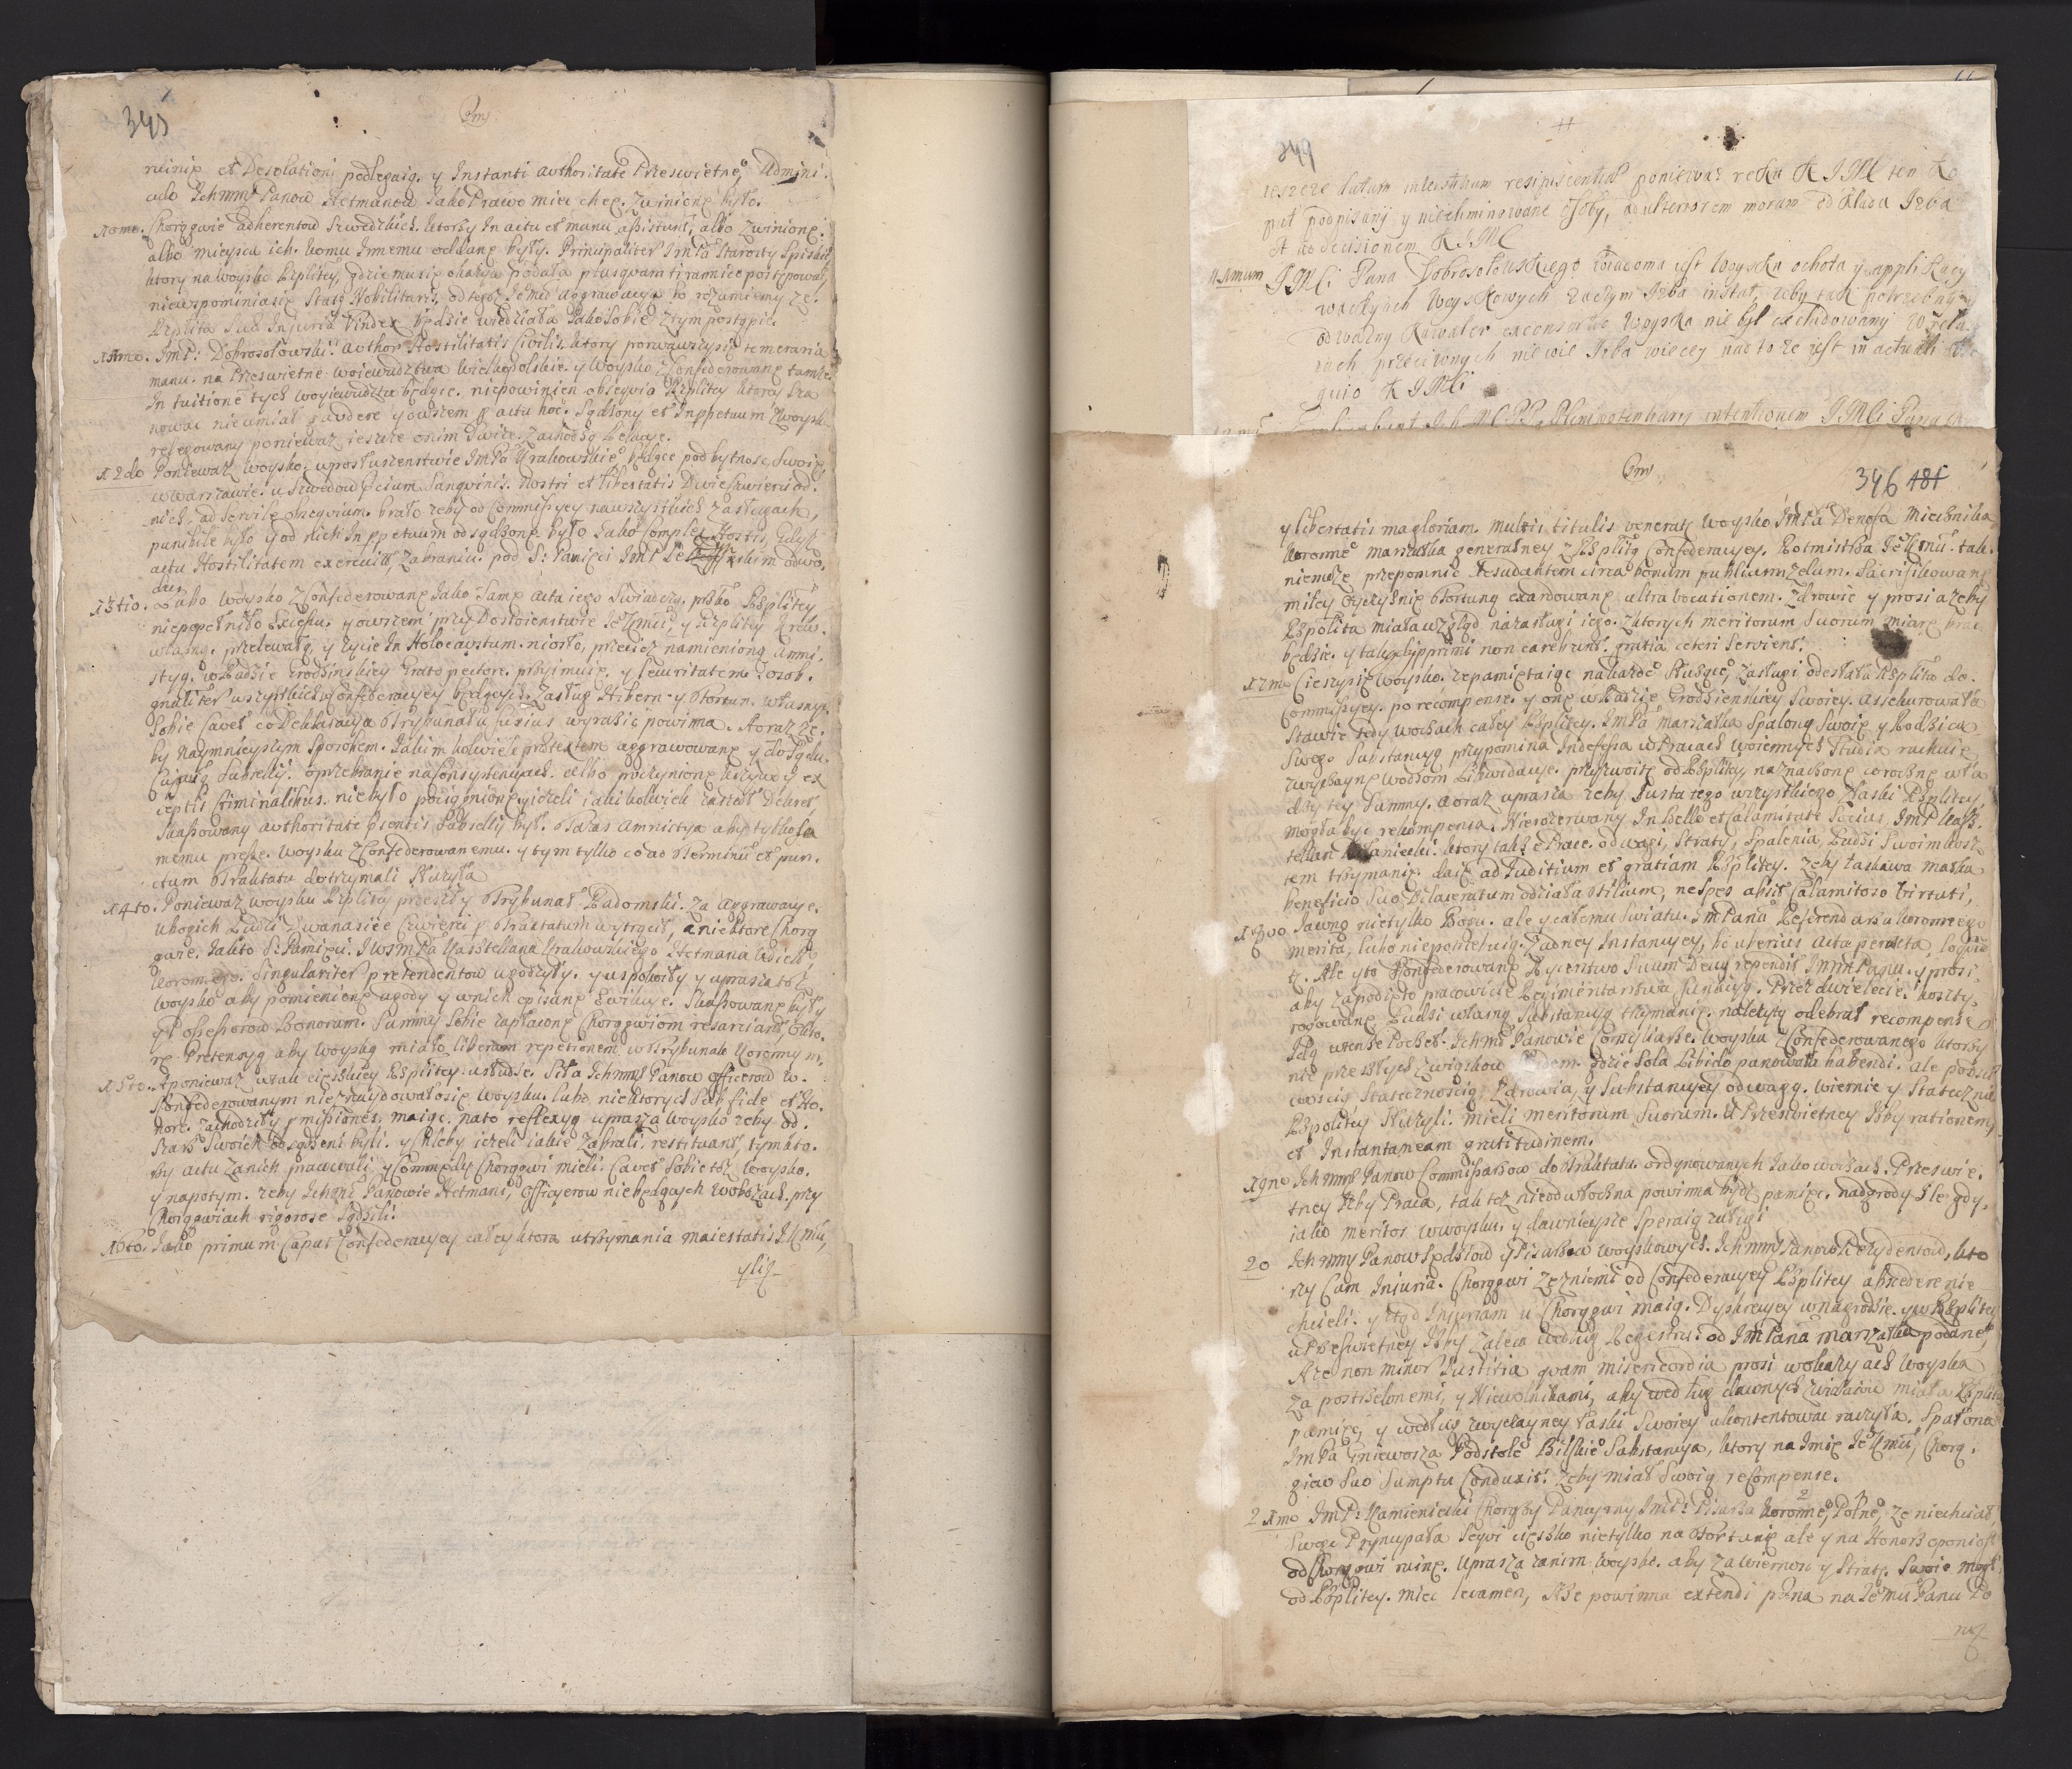 345
ruinię et Desolationi podlegaią. y Instanti authoritate Prześwietne, Admini.
culo Ichmm Panow Hetmanow Iako Prawo miec chce. zwinione było.
10mo. Chorągwie adherentow Szwedzkich. ktorzy In actu et manu assistunt, albo zwinione.
albo mieysca ich. komu Innemu oddane były. Principaliter ImPa Starosty Spiski,
ktory na Woysko Rzplitey, gdzie mu się okazya podała plusquam tirannice postępował,
niewspominiaiąc Statg Nobilitaris, od tegoż
Rzplita Suæ Injuriæ Vindex będzie wiedziała Iako Sobie z tym postąpic.
11mo. ImP: Dobrosołowski. Author Hostilitatis Civilis, ktory porwawszy się temeraria
manu. na Prześwietne Woiewudztwa Wielkopolskie. y Woysko Zkonfederowane tamże.
In tuitione tych Woyiewudztw będące. niepowinien obsequia Rzplitey ktorey Sza
nowac nieumiał gaudere y owszem p actu hoc. Sądzony et Inppetuum z Woyska
relegowany ponieważ ieszcze onim Swieże. zachodzą Relacye.
12do Ponieważ Woysko. w posłuszenstwie ImPa Krakowskie będące pod bytnosc Swoię
w Warszawie. u Szwedow pcium Sanguinis. Nostri et libertatis Dwie Kwiercie od.
nich, ad Servile obsequium. brało żeby od Commissyey na wszystkich zasługach,
punibile było y od nich In ppetuum odsądzone było Iako Complex Hostis, Gdysz
actu Hostilitatem exercuit, zabraniu. pod S: Pamięci ImP
13tio. Lubo Woysko Zkonfederowane Iako Same Acta iego Swiadczą. przeciwko Rzplitey
niepopełniło Excessu. y owszem przy Dostoienstwie IeKmci, y Rzplitey Krew.
własną. przelewało, y życie In Holocaustum. niosło, przecież namienioną Amni.
styą. w Radzie Grodzinskiey Grato pectore. przyimuie. y Securitatem osob.
gnaliter wszystkich w Konfederacyey będących. Zasług Hibern y Fortun. własnych
Sobie Cavet co Deklaracya Trybunału fusius wyrazić powinna. A oraz że.
by Naymnieyszym Sposobem. Iakim kolwiek prætextem aggrawowane y do Sądu.
cujusvis Subsellij. o przebranie na Consystencyach. albo poczynione krzywdy ex
ceptis Criminalibus. niebyło pociągnione, y ieżeli iaki kolwiek zaszedł Dekret
Skassowany authoritate psentis Subsellij był. Taż Amnistya aby tylko sa
memu præse. Woysku Zkonfederowanemu. y tym tylko co ad Terminum et pun.
ctum Traktatu dotrzymali Służyła
14to. Ponieważ Woysku Rzplitey przeszły Trybunał Radomski. za Aggrawacye.
Ubogich Ludzi Dwanascie Czwierci p Traktatum wytrącił, a niektore Chorą
gwie. Iakoto S: Pamięci. I WImPa Kasztellana Krakowskiego Hetmana Wielkie
Koronnego. Singulariter pretendentow ugodzyły. y uspokoiły y uprasza toż
Woysko aby pomienione ugody y wnich opisane Ewikcye. Skassowane były
y Possessorow Bonorum. Summy Sobie zapłacone Chorągwiom resarciant, o kto.
re Pretensyą aby Woysko miało liberam repetitionem w Trybunale Koronnym,
15to. A ponieważ wtak cięszkiey Rzplitey. usłudze. Siła Ichmm Panow Officerow w.
Skonfederowanym nieznaydowało się Woysku. Lubo niektorych Sub fide et Ho.
nore zachodziły p missiones. maiąc. na to reflexyą uprasza Woysko żeby od.
szarż Swoich odsądzeni byli. y Chleby ieżeli iakie zabrali, restituant, tym kto.
rzy actu zanich pracowali y Commędy Chorągwi mieli. Cavet Sobie toż Woysko.
y napotym. żeby Ichmm Panowie Hetmani, Officyerow niebędących w obozach. przy
Chorągwiach rigorose Sądzili.
16to. Iako primum Caput Confederacyey całey ktora utrzymania maiestatis IKmci,
ylib
349
ieszcze datum intertitium resipiscentiæ ponieważ ręką K IMC ten Ko
put podpisany y nieeliminowane Osoby, ad ulteriorem moram odkłada Izba
et ad decisionem K IMC
11mum IMCi Pana Dobrosołowskiego wiadoma iest Woyska ochota y applikacya
w ackyich Woyskowych zaczym Izba instat, żeby tak potrzebny y
odważny Kawaler ex consortio Woyska nie był excludowany w rela.
ciach przeciwnych nie wie Izba więcey nad to że iest in actuali obse
quio K IMCi
346 181
y libertatis ma gloriam. multis titulis veneratg Woysko ImPa Denofa Miecznika
Koronne Marszałka generalney z Rzplitą Confederacyey. Rotmistrza IeKmci. tak.
niemoże przepomnic desudantem circa bonum publicum zelum. Sacrifikowane
miłey oyczyznie Fortunę exardowane ultra vocationem. zdrowie y prosi ażeby
Rzpolita miała wzgląd na zasługi iego. z ktorych meritorum Suorum miarę brac
będzie. y talą ubi primi non carebunt. gratia ceteri servient.
17mo Cieszy się Woysko. że pamiętaiąc na każdo Sługę, zasługi odesłała Rzplita do.
Commissyey. po recompensę. y onę w Radzie Grodzienskiey Swoiey. assekurowała
Stawić tedy w oczach całey Rzplitey. ImPa Marszałka Spaloną Swoię y Rodzica
Swego Substancyą przypomina Indefessa w Pracach woiennych Studia rachuie
zwyczayne wodzom Likwiduie. przyzwoite od Rzplitey naznaczone coroczne w ła
dzy tey Summy. a oraz uprasza żeby Iuxta tego wszystkiego z łaski Rzplitey.
mogła być rekompensa. Nierozerwany In bello et Calamitate Socius. ImP Kasz.
tellan ktory także Prace. odwagi, Straty, Spalenia, Ludzi Swoim kosz
tem trzymanie. daie ad Iuditium et gratiam Rzplitey. żeby łaskawa matka
beneficio Suo Dilaceratum odziała filium, ne spes absit Calamitoso Virtuti,
18vo Iawno nietylko Bogu. ale y całemu Swiatu. ImPana Referendarza Koronnego
merita, lubo niepotrzebuią. Zadney Instancyey, bo uberius acta peracta, loqun
tg. Ale y to Konfederowane Rycerstwo Suum Deug rependit ImmPanu. y prosi
aby za podięto pracowicie Regimentarstwa funkcyą. Przez dwie lecie. koszty.
rogowane, Ludzi własną Substancyą trzymanie. należytą odebrał recompensę
Idą wtenże Poczet. Ichmm Panowie Consyliarze. Woyska Zkonfederowanego ktorzy
nie przeszłych związkow gdzie Sola Libido panowała habendi. ale poczci
wością Statecznoscią, Zdrowia, y Substancyey odwagą. wiernie y Statecznie
Rzpolitey Służyli. mieli meritorum Suorum. u Prześwietney Izby rationem,
et Instantaneam gratitudinem.
19no Ichmm Panow Commissarzow do Traktatu ordynowanych Iako w oczach. Prześwie.
tney Izby Praca, tak też nieodwłoczna powinna być pamięc. nadgrody ile gdy.
iako meritos w Woysku. y dawnieysze Speraią zasługi
20 Ichmmy Panow Sędziow y Pisarza Woyskowych. Ichmm Panow Rezydentow, kto
rzy Cum Injuria. Chorągwi żeż niemi od Confederacyey Rzplitey abscedere nie
chcieli. y ztąd Injuriam u Chorągwi maią. Dyskrecyey w nagrodzie. y w Rzplitey
u Prześwietney Izby zaleca według Regestru. od ImPana Marszałka podane,
A że non minor Iustitia quam misericordia prosi w okazyach Woyska
za postrzelonemi, y Niewolnikami, aby według dawnych zwiazkow miała Rzplita
pamięć, y według zwyczayney łaski Swoiey ukontentować raczyła. Spalona
ImPa Gniewosza Podstole Bilskie Substancya, ktory na Imię IeKmci, Chorą.
giew Suo Sumptu Conduxit. żeby miał Swoią recompensę.
21mo ImP: Kamieniecki Chorąży Pancerny ImP: Pisarza Koronne, Polne, ze niechciał
Swego Pryncypała Seqvi cięszko nietylko na Fortunie ale y na Honorze poniosł
od Chorągwi ruinę. Uprasza zanim woysko. aby za wiernosc y Stratę. Swoie mogł
od Rzplitey. miec levamen, Aże powinna extendi pæna na Iemci Panu Po